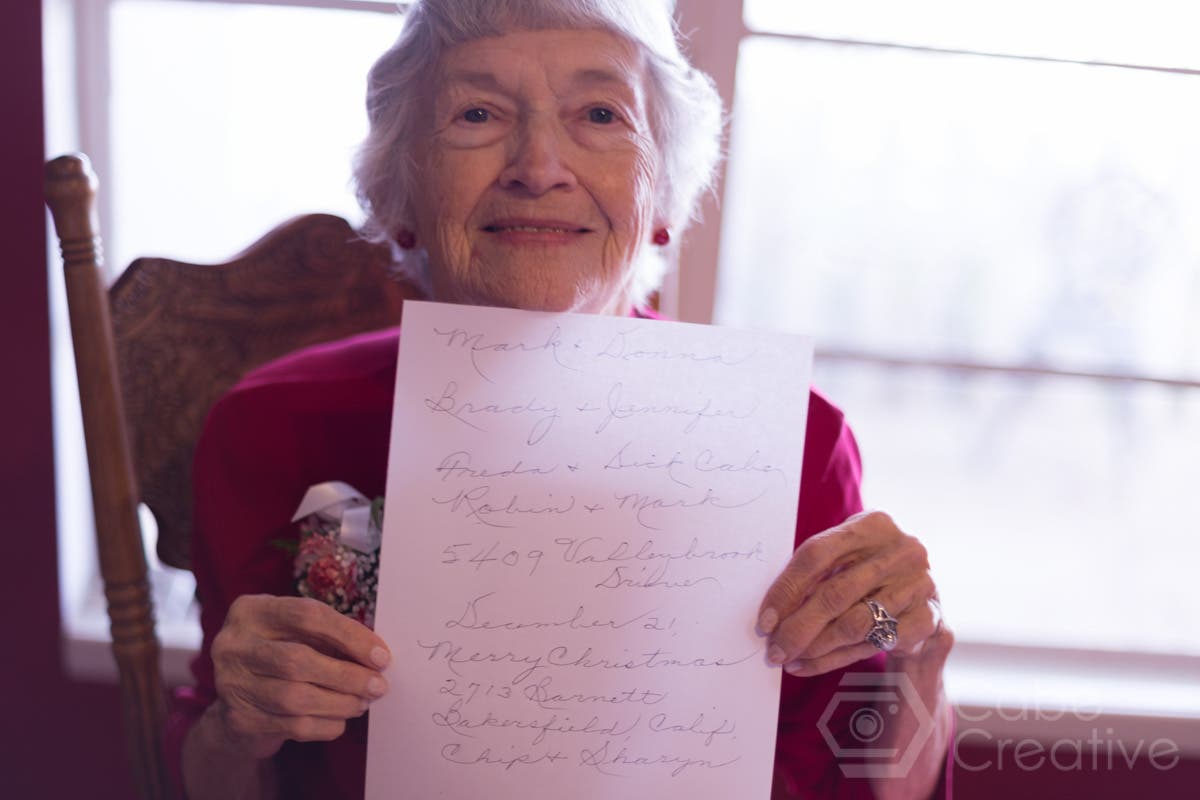 Mark & Donna
Brady & Jennifer
Freda & Dick Cabe
Robin & Mark
5409 Valleybrook
Drive
December 21,
Merry Christmas
2713 Barnett
Bakersfield, Calif.
Chip & Sharyn
Cabe
Creative